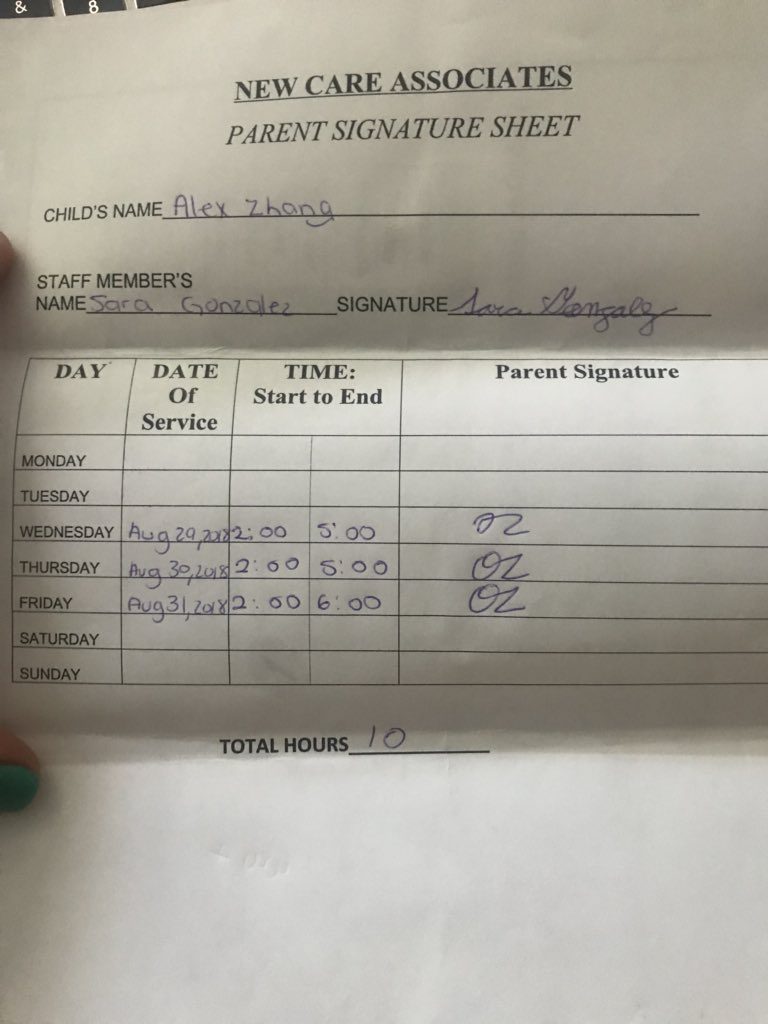 & 8
NEW CARE ASSOCIATES
PARENT SIGNATURE SHEET
CHILD'S NAME Alex Zhang
STAFF MEMBER'S
NAME Sara Gonzalez SIGNATURE Sara Gonzalez
DAY DATE TIME: Parent Signature
Of Start to End
Service
MONDAY
TUESDAY
WEDNESDAY Aug 29, 2018 2:00 5:00 OZ
THURSDAY Aug 30, 2018 2:00 5:00 OZ
FRIDAY Aug 31, 2018 2:00 6:00 OZ
SATURDAY
SUNDAY
TOTAL HOURS 10